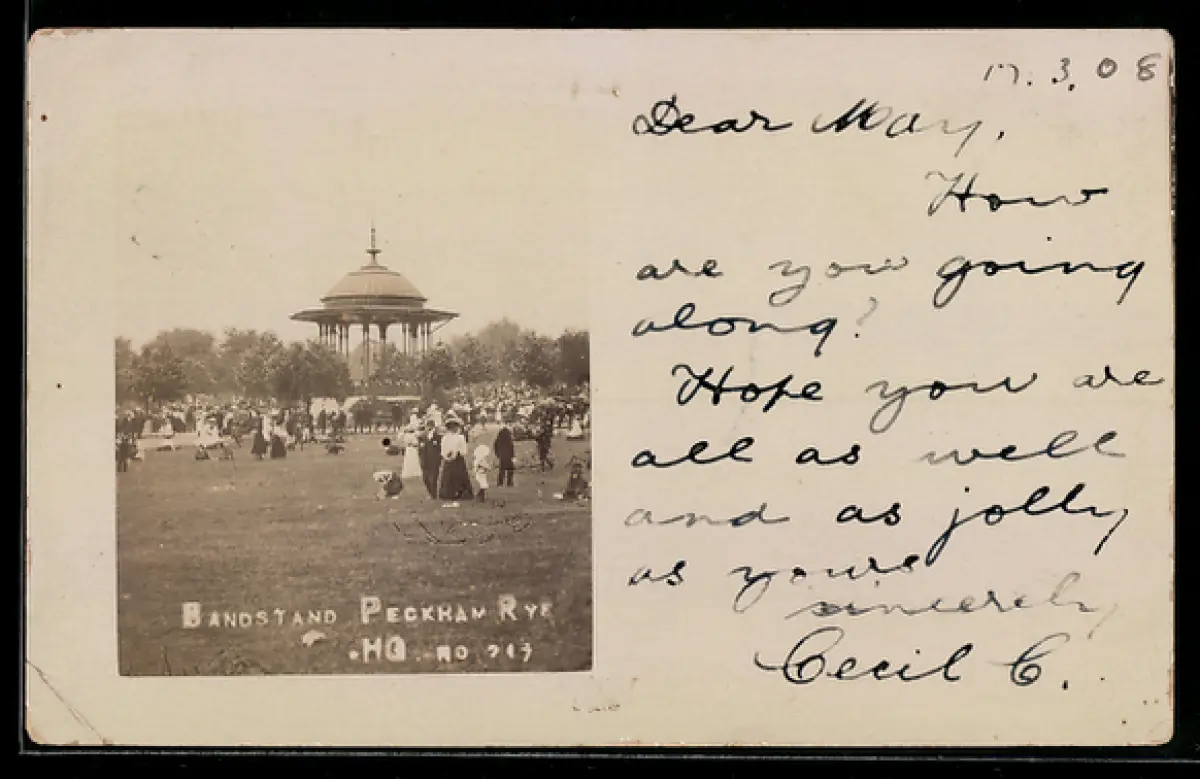 17.3.08
Dear May,
How
are you going
along?
Hope you are
all as well
and as jolly
as yours
sincerely
Cecil C.
BANDSTAND PECKHAM RYE
.HQ.-NO 717